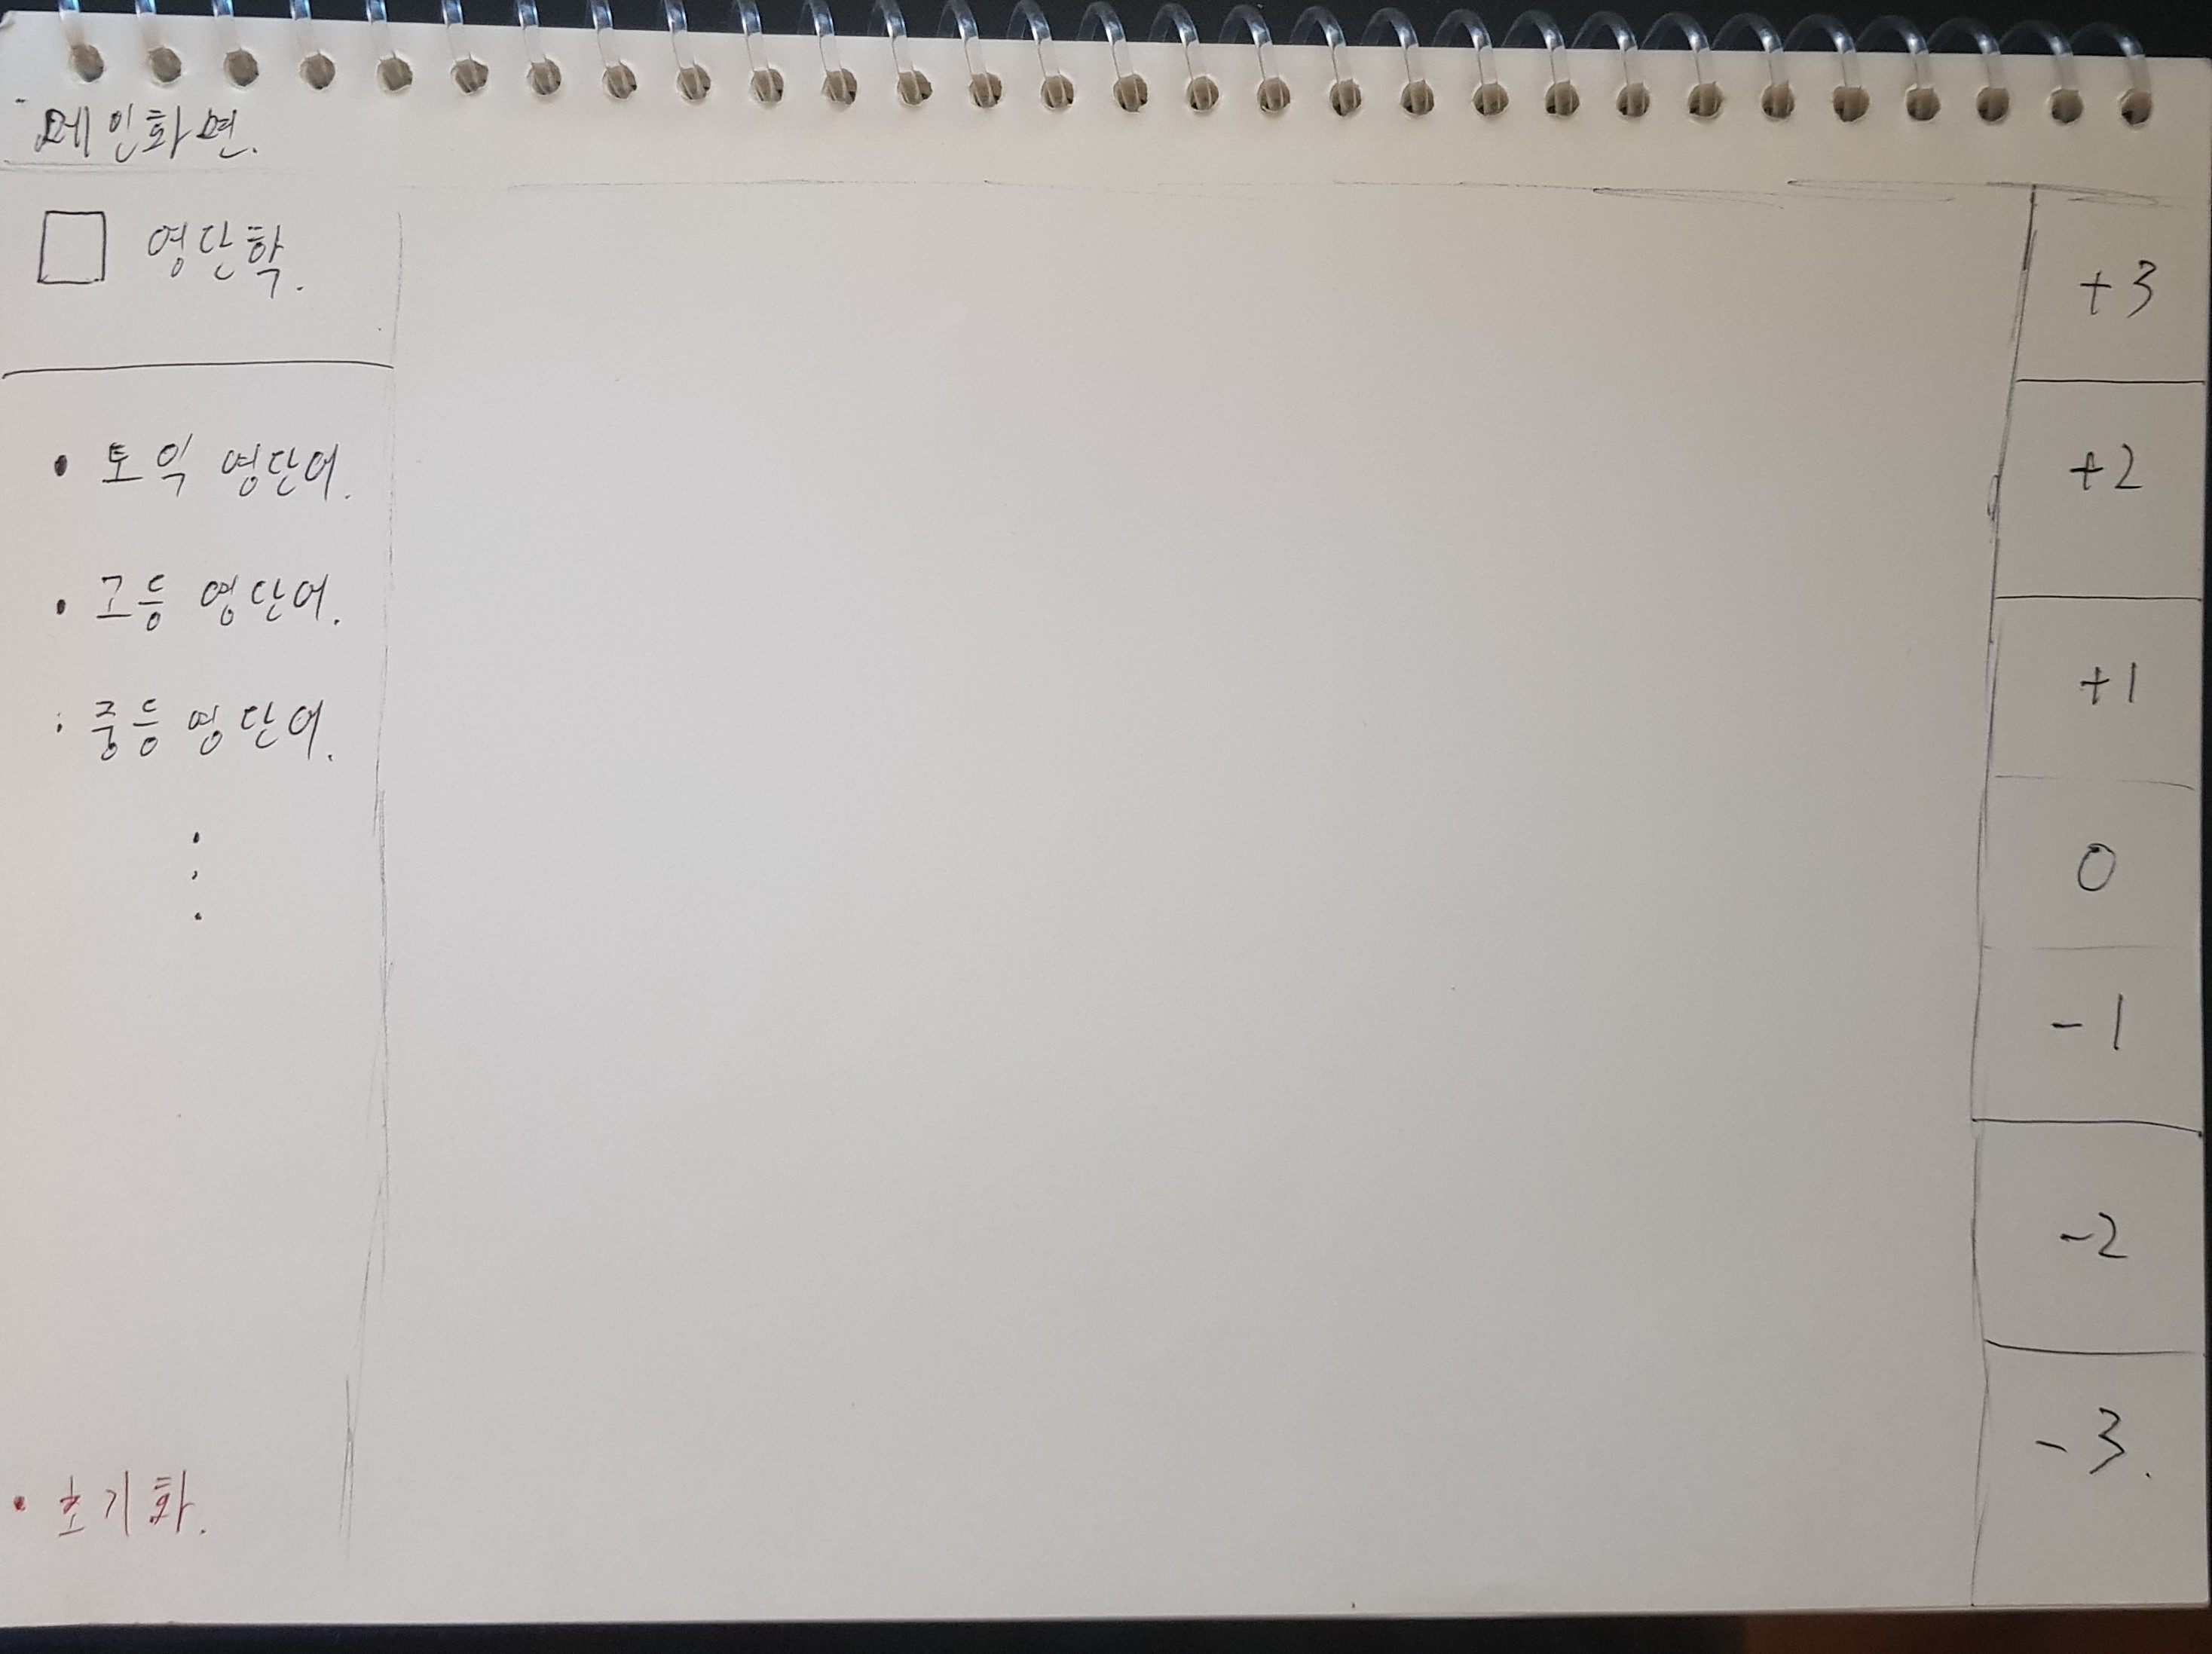 메인화면.
영단학.
• 토익 영단어.
• 고등 영단어.
• 중등 영단어.
• 초기화.
+3
+2
+1
0
-1
-2
-3.